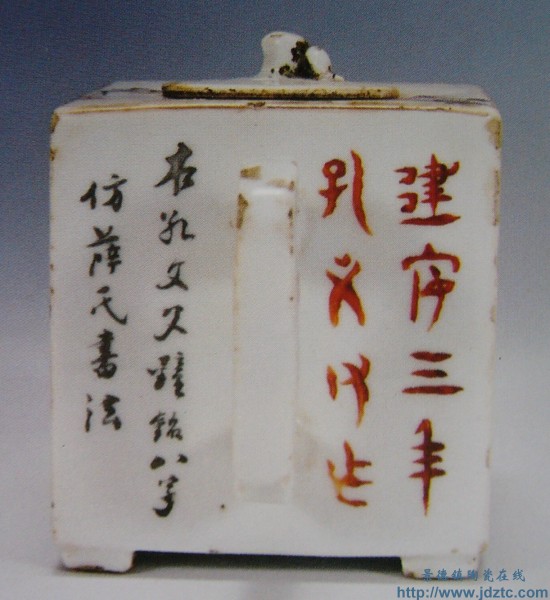 建寧三年
孔文父作
右孔文父鐘銘八字
仿薛氏書法
景德镇陶瓷在线
http://www.jdztc.com